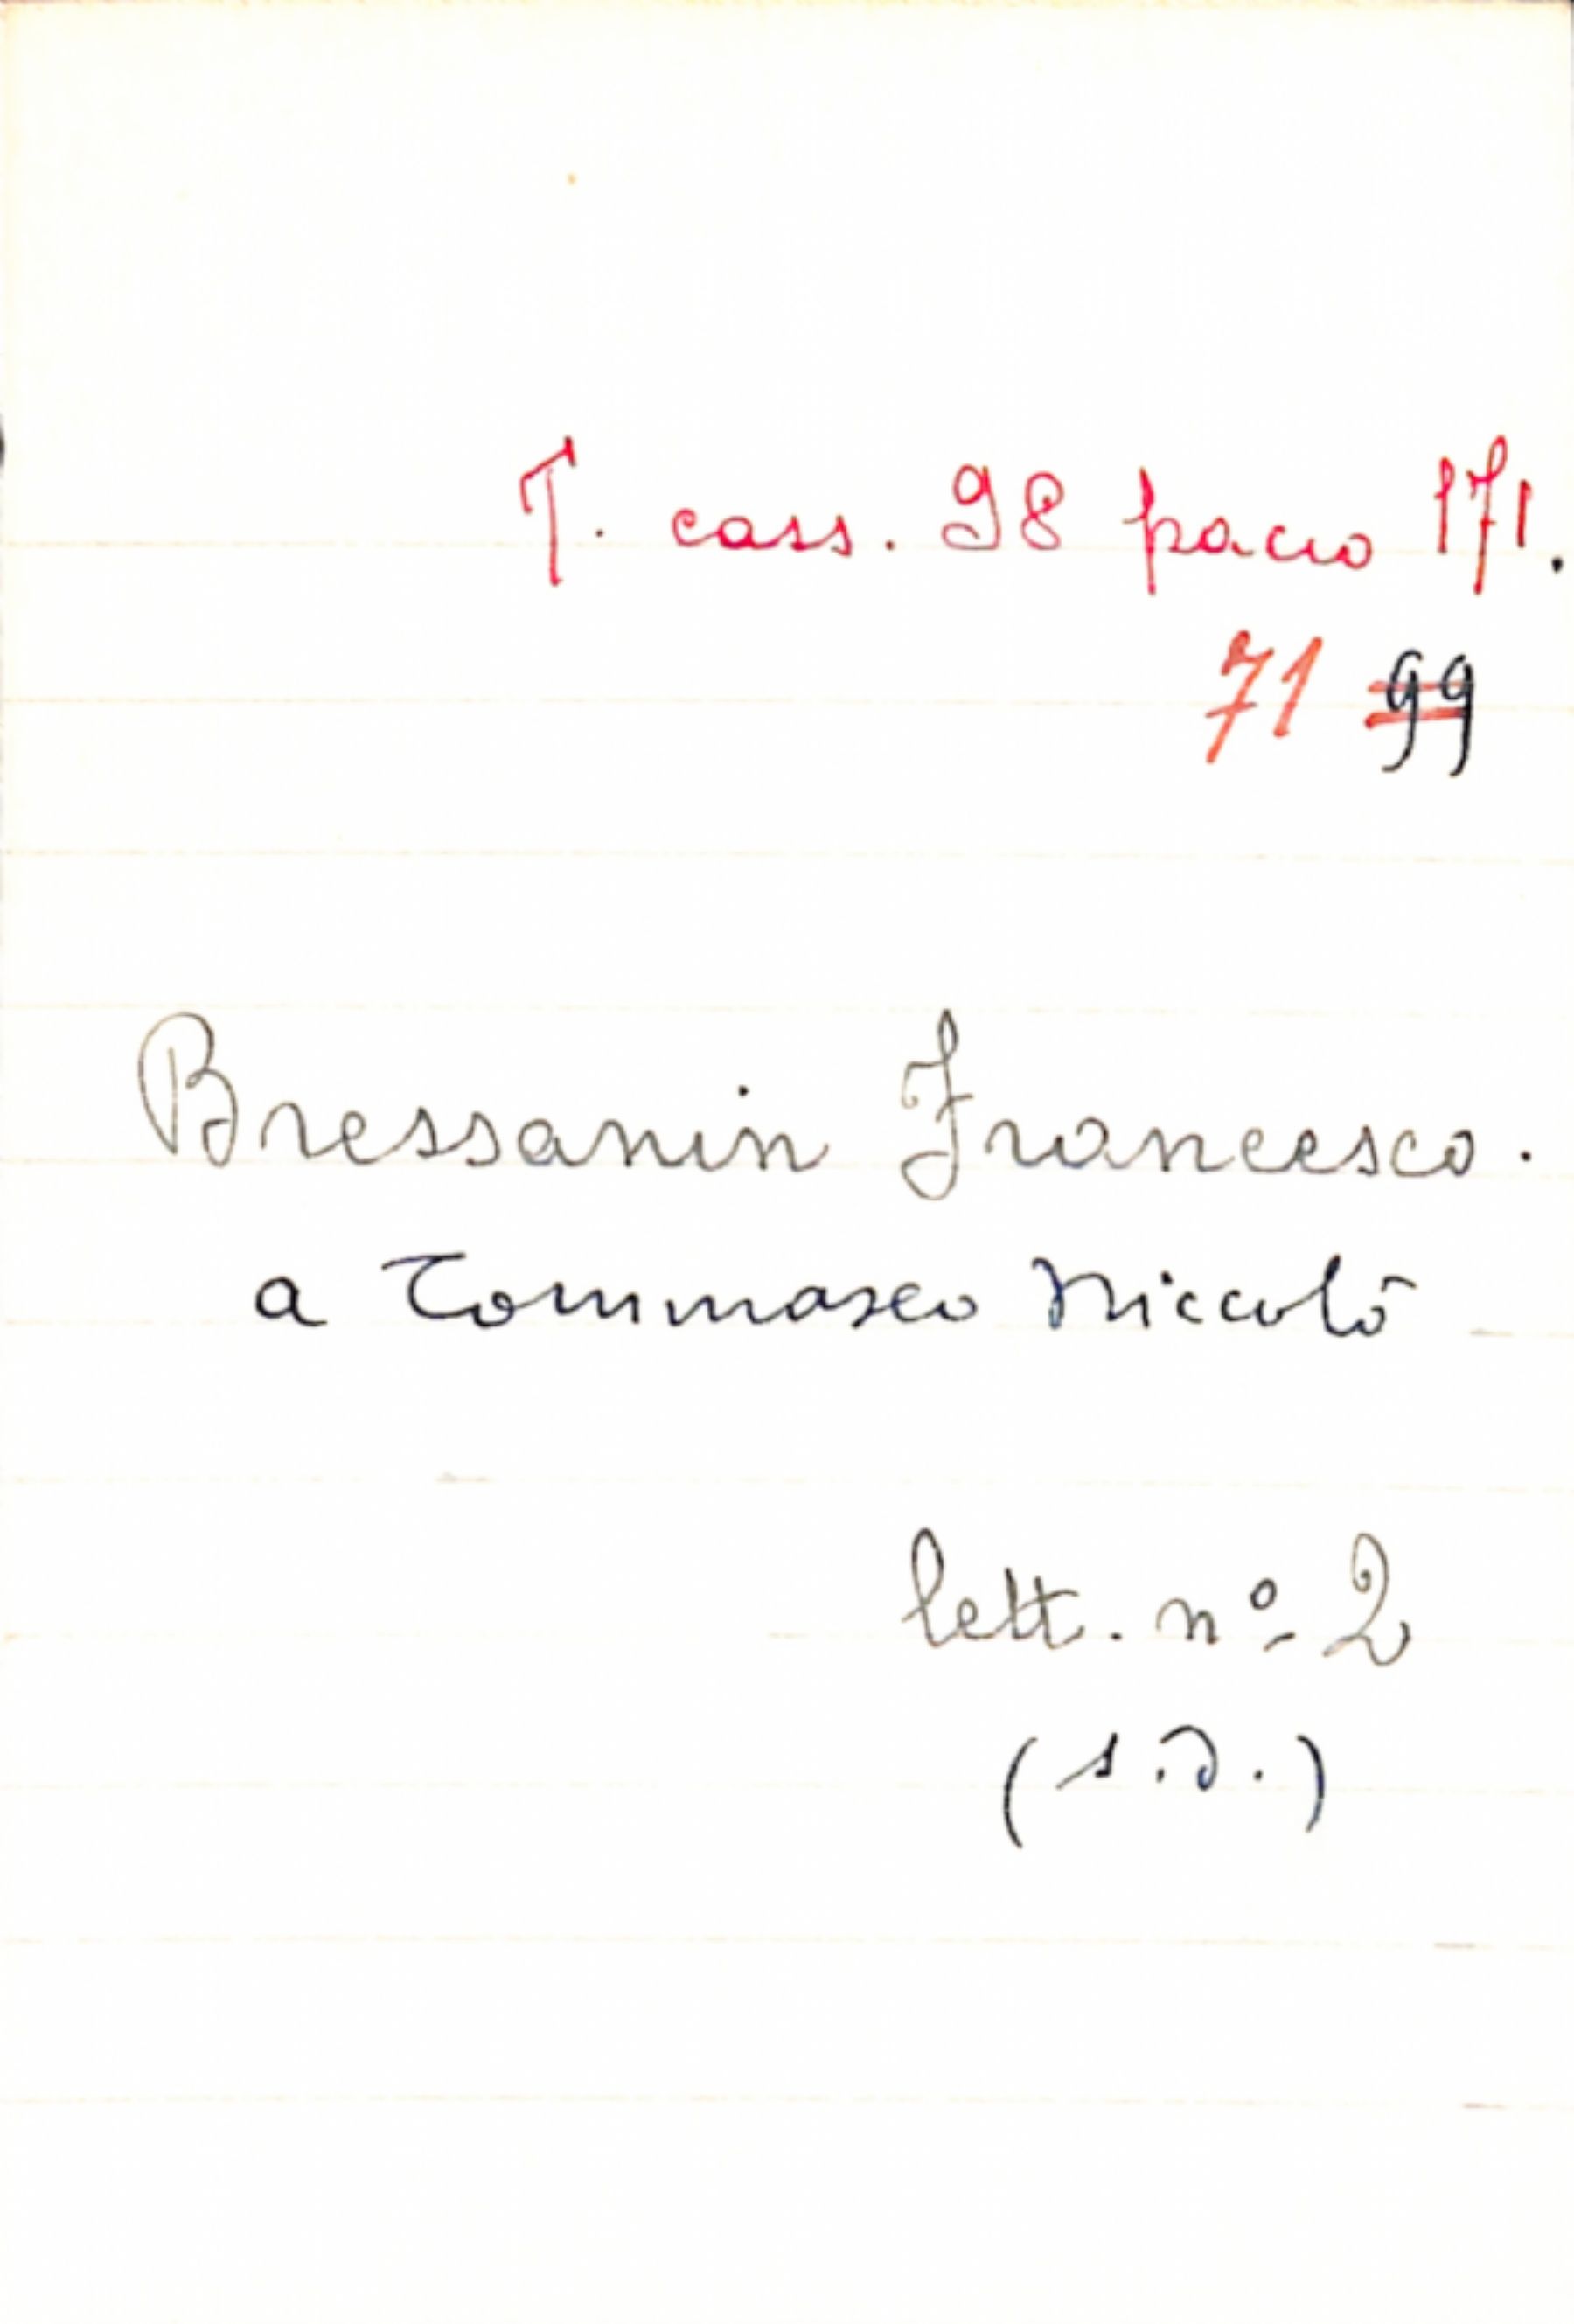 T. cass. 98 pacco 171.
71 99
Bressanin Francesco.
a Tommaseo Niccolò
lett. nº 2
(s.d.)